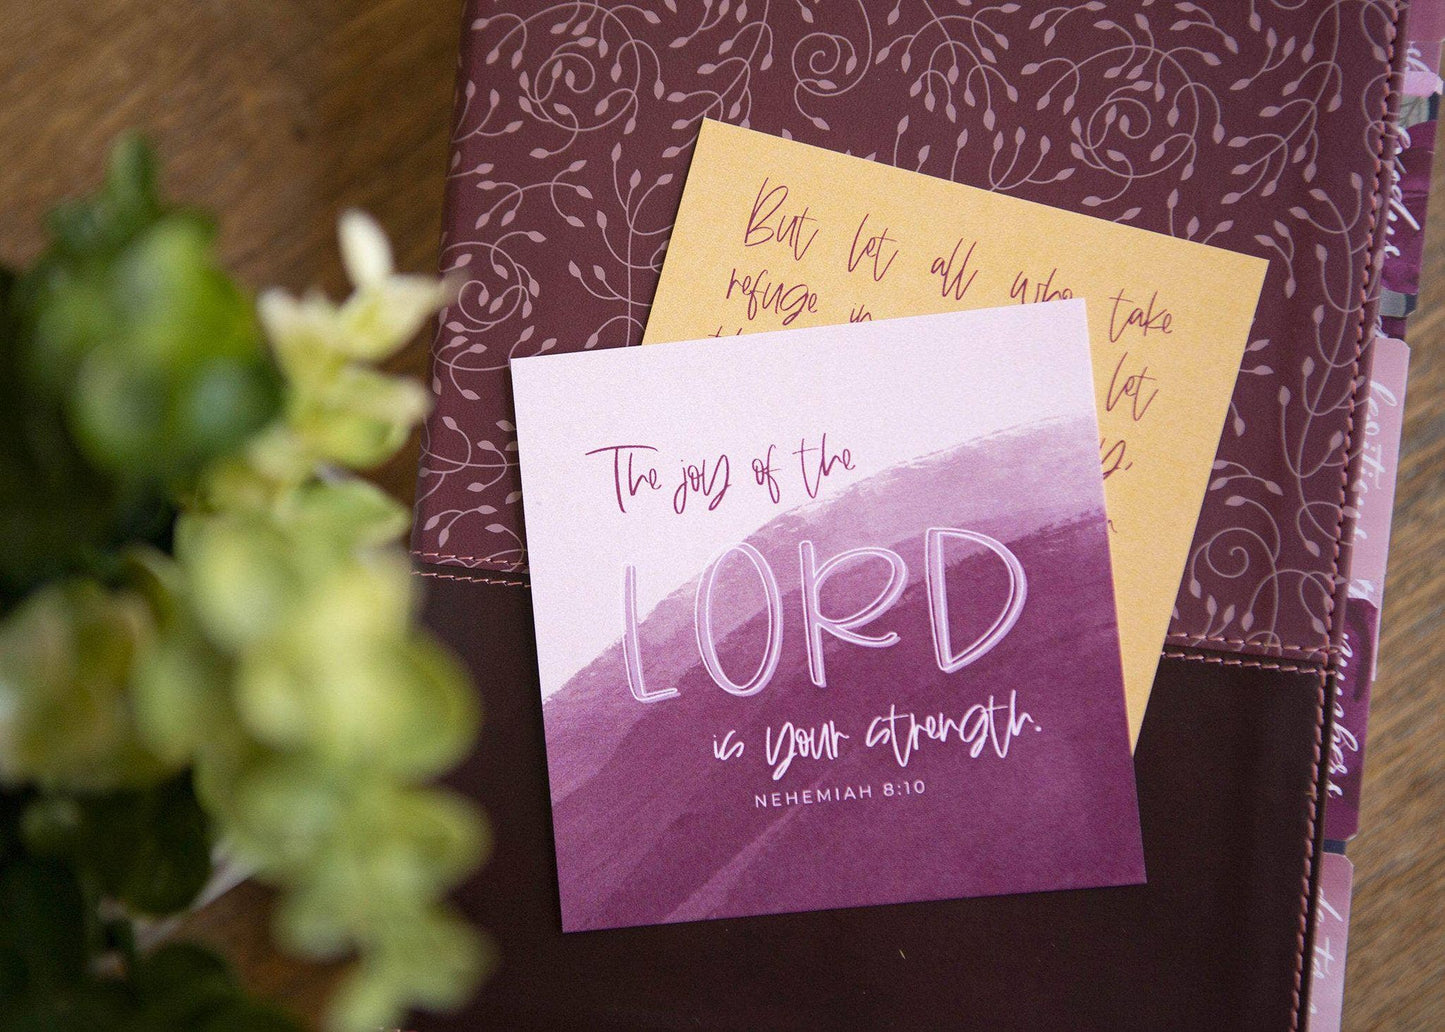 But let all who take
refuge in
let
The joy of the
LORD
is your strength.
NEHEMIAH 8:10
Exodus
Leviticus
Numbers